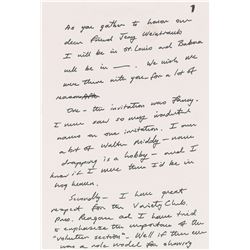 1
As you gather to honor our
dear friend Jerry Weintraub
I will be in St. Louis and Barbara
will be in —. We wish we
were there with you for a lot of
reasons
One - the invitation was fancy.
I never saw so many wonderful
names on one invitation. I
a lot of Walter - name
dropping is a hobby - and I
know if I were there I'd be in
hog heaven.
Secondly - I have great
respect for the Variety Club.
Pres. Reagan and I have tried
to emphasize the importance of the
"volunteer sector". Well if there ever
was a role model for showing